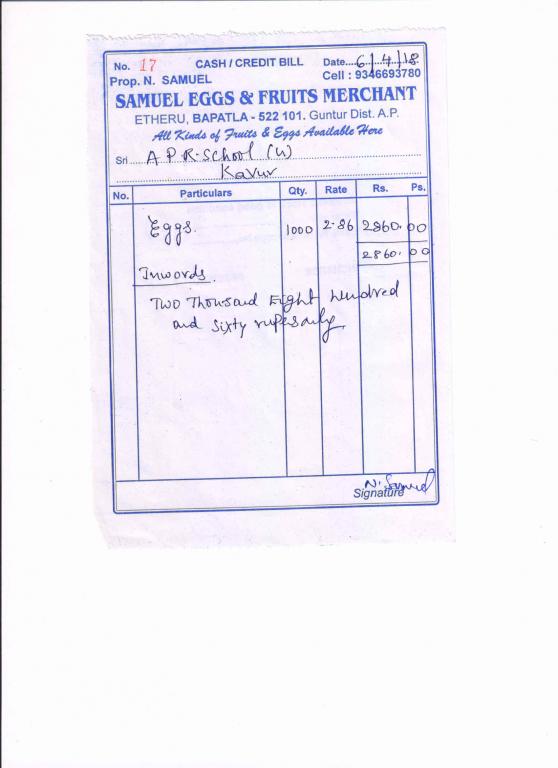 No. 17 CASH / CREDIT BILL Date....6/4/18
Prop. N. SAMUEL Cell : 9346693780
SAMUEL EGGS & FRUITS MERCHANT
ETHERU, BAPATLA - 522 101. Guntur Dist. A.P.
All Kinds of Fruits & Eggs Available Here
Sri A P R-School (U)
Kavur
No. Particulars Qty. Rate Rs. Ps.
Eggs. 1000 2-86 2860. 00
2860. 00
Inwords.
Two Thousand Eight hundred
and sixty rupes only
N. Samuel
Signature